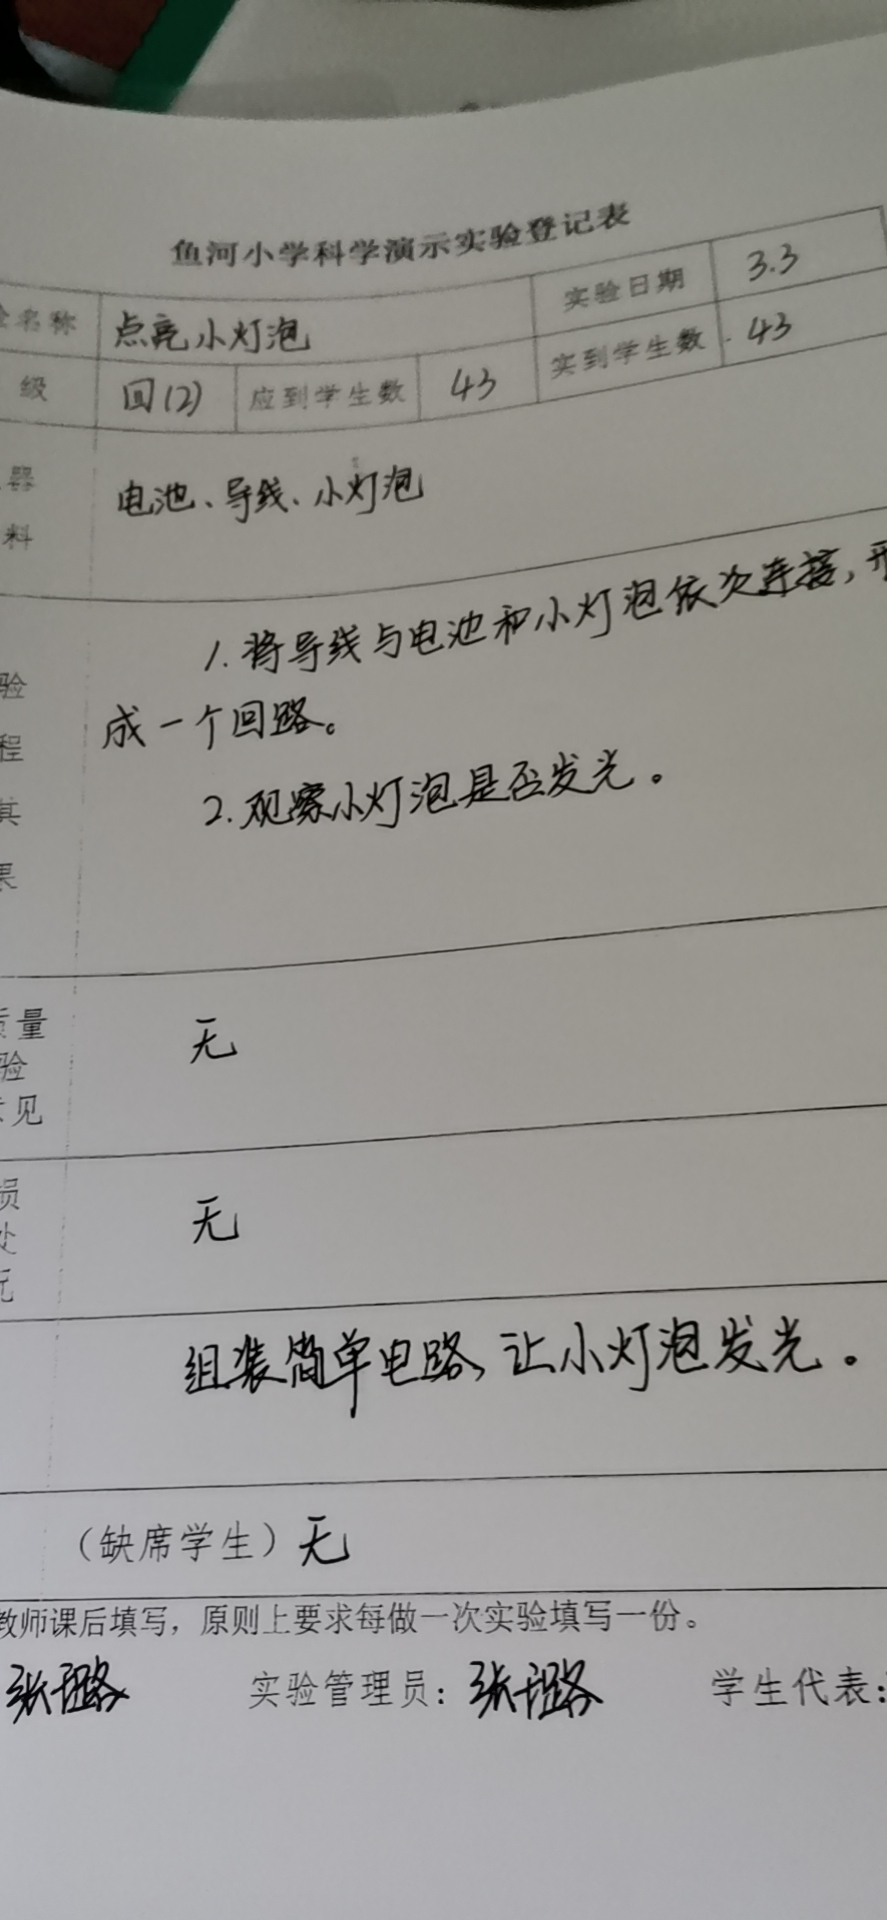 鱼河小学科学演示实验登记表
名称 点亮小灯泡 实验日期 3.3
级 四(2) 应到学生数 43 实到学生数 43
器
料
电池、导线、小灯泡
1.将导线与电池和小灯泡依次连接,形
验
成一个回路。
程
2.观察小灯泡是否发光。
其
果
质量
验
意见
无
损
处
无
组装简单电路,让小灯泡发光。
(缺席学生)无
教师课后填写,原则上要求每做一次实验填写一份。
张璐 实验管理员:张璐 学生代表: